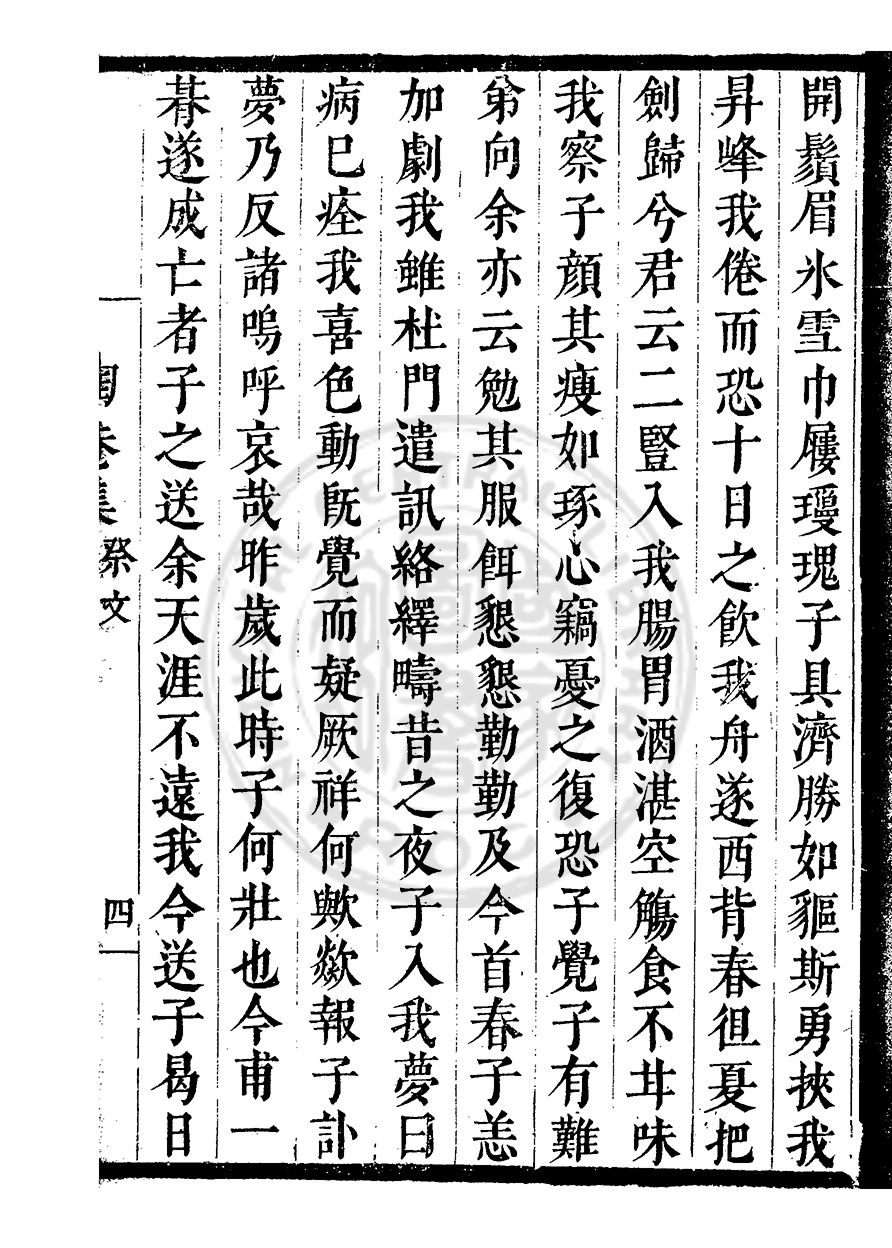 開鬚眉氷雪巾屨瓊瑰子具濟勝如貙斯勇挾我
昇峰我倦而恐十日之飲我舟遂西背春徂夏把
劍歸兮君云二豎入我腸胃酒湛空觴食不甘味
我察子顏其瘦如琢心竊憂之復恐子覺子有難
弟向余亦云勉其服餌懇懇勤勤及今首春子恙
加劇我雖杜門遣訊絡繹疇昔之夜子入我夢曰
病已痊我喜色動旣覺而疑厥祥何歟歘報子訃
夢乃反諸嗚呼哀哉昨歲此時子何壯也今甫一
朞遂成亡者子之送余天涯不遠我今送子曷日
陶菴集 祭文 四